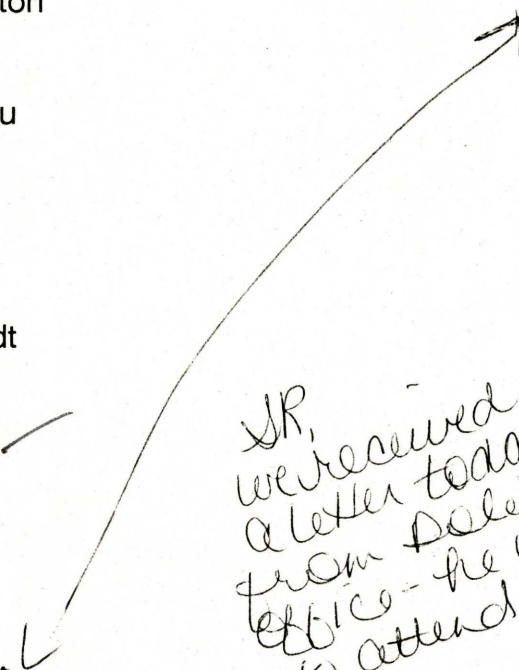 ton
u
dt
SR,
we received
a letter toda
from Dole
office - he
to attend